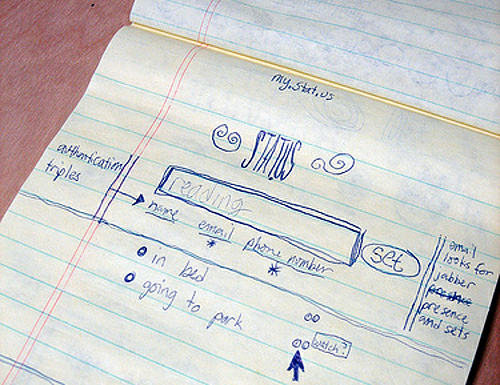 my.stat.us
STAT.US
authentication
triples
reading
name email phone number
set
in bed
going to park
watch?
email
looks for
jabber
presence
and sets